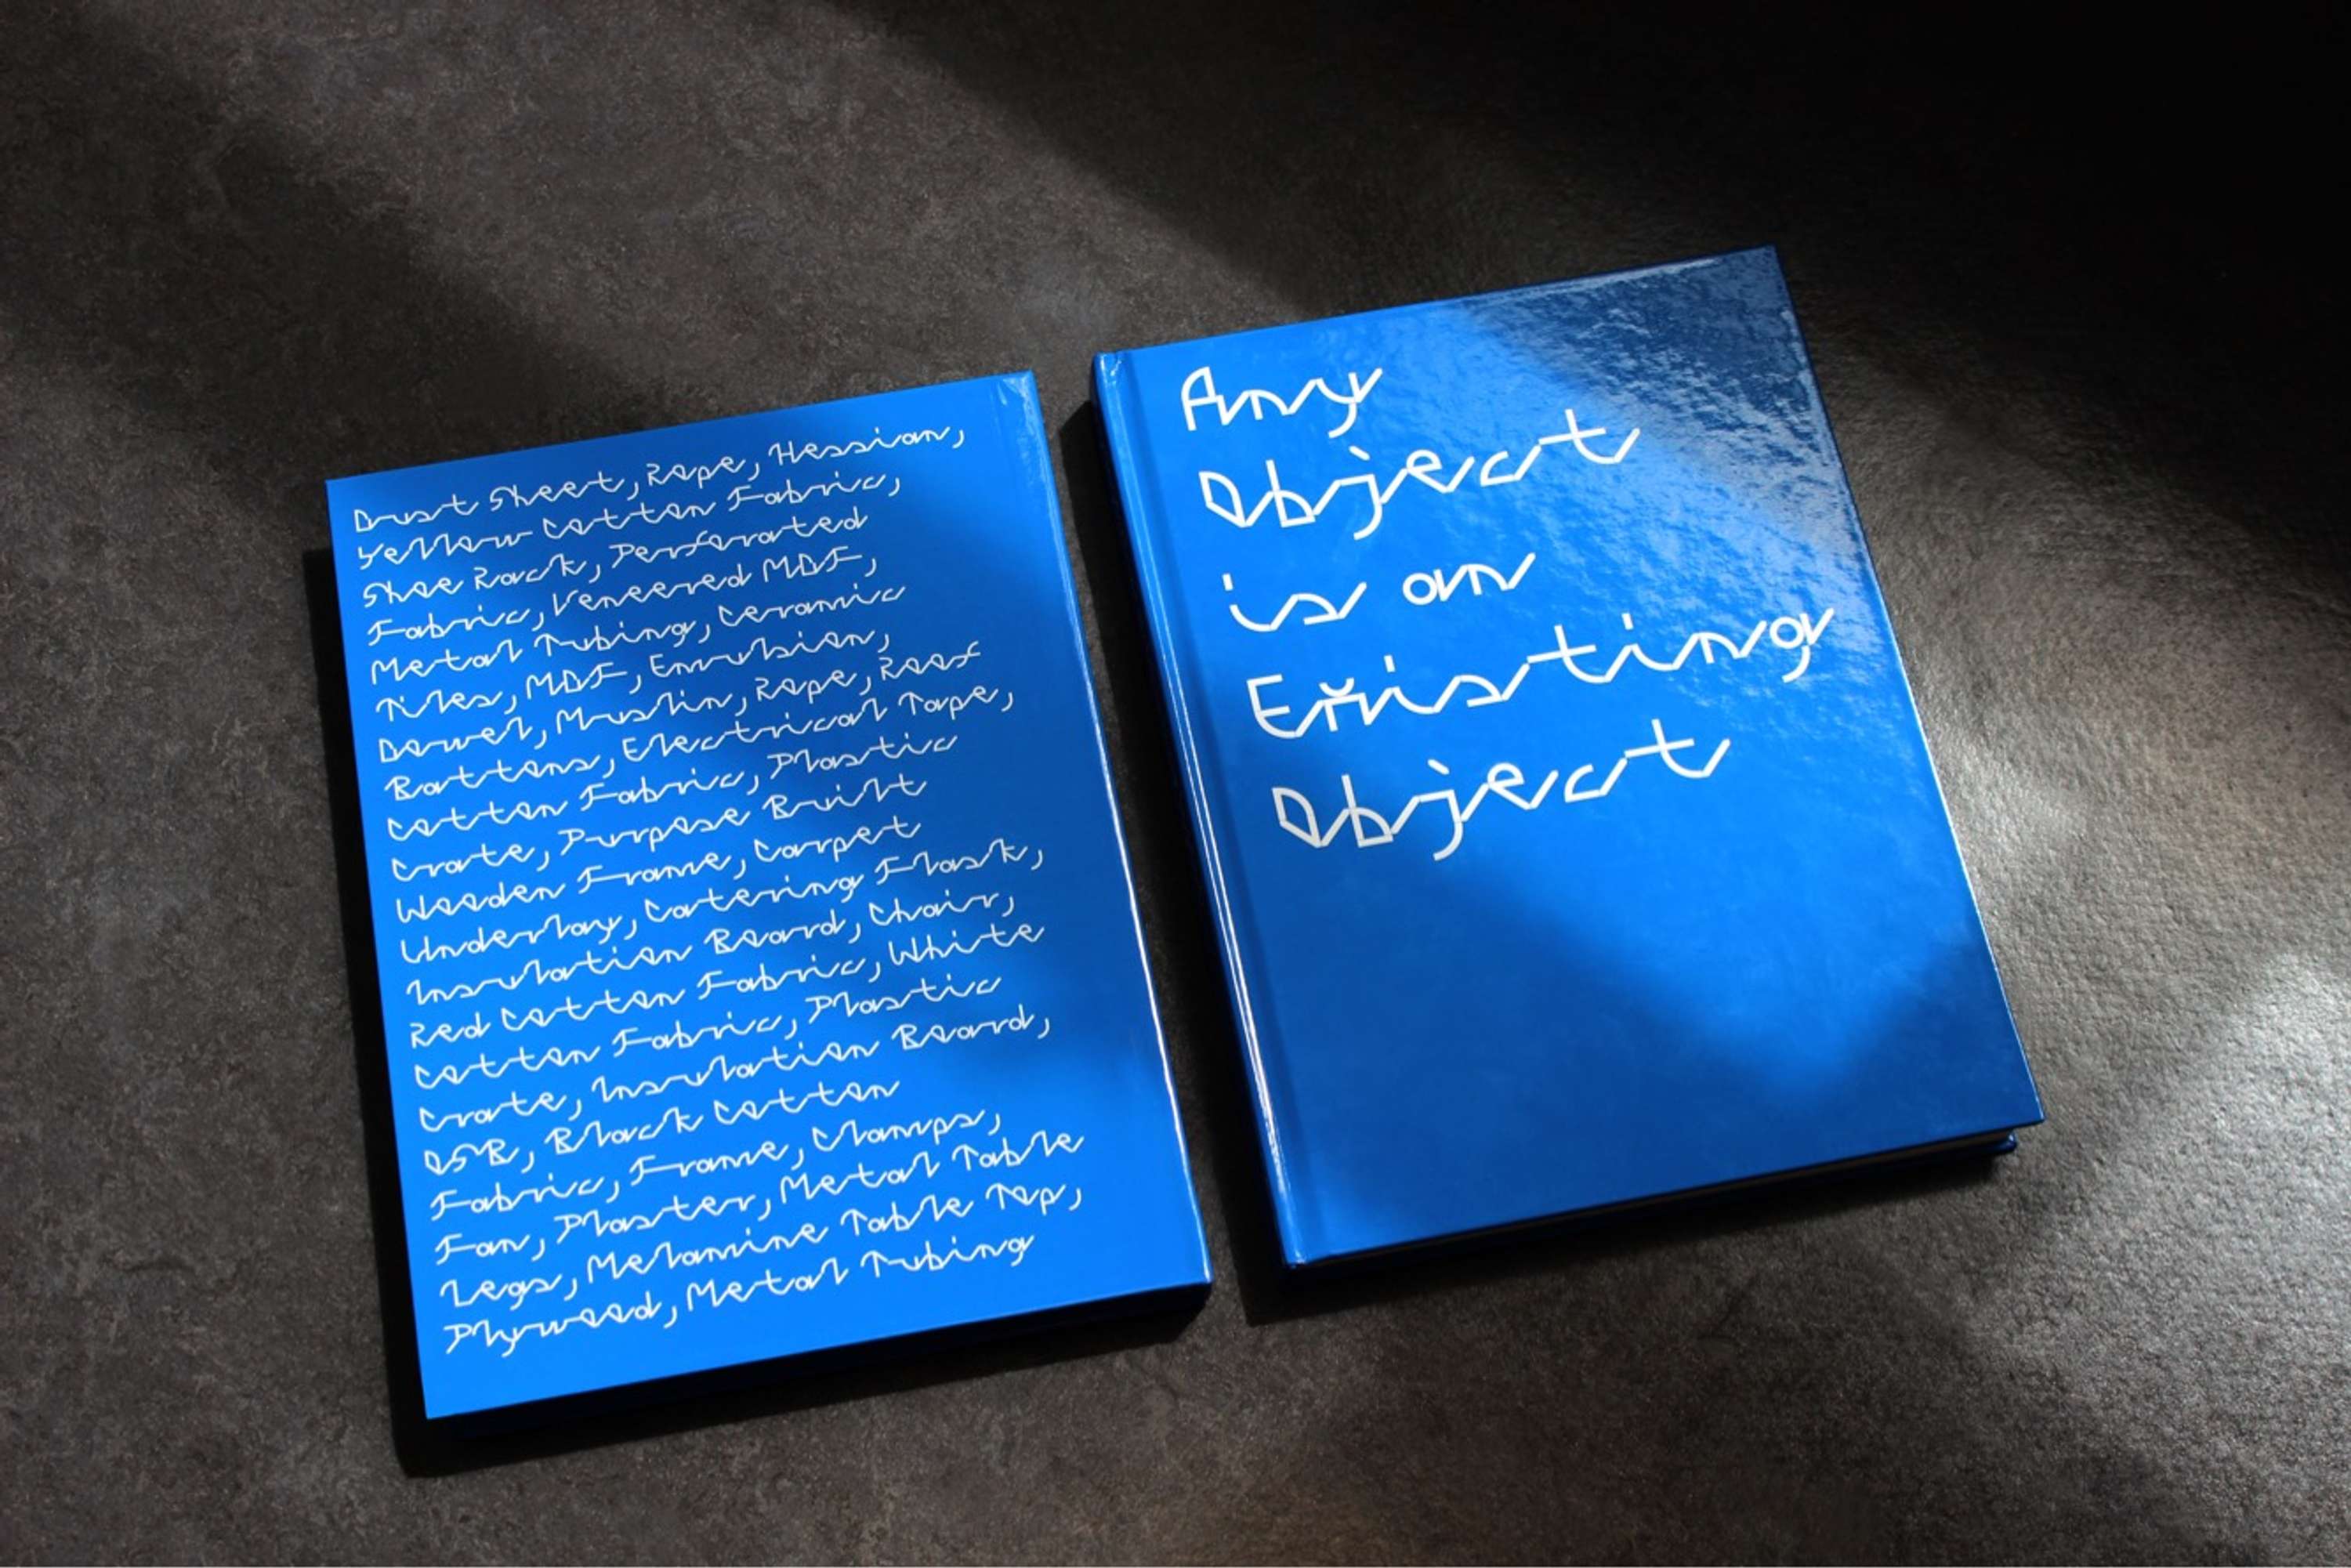 Dust Sheet, Rope, Hessian,
Yellow Cotton Fabric,
Shoe Rack, Perforated
Fabric, Veneered MDF,
Metal Tubing, Ceramic
Tiles, MDF, Emulsion,
Dowel, Muslin, Rope, Roof
Battens, Electrical Tape,
Cotton Fabric, Plastic
Crate, Purpose Built
Wooden Frame, Carpet
Underlay, Catering Flask,
Insulation Board, Chair,
Red Cotton Fabric, White
Cotton Fabric, Plastic
Crate, Insulation Board,
OSB, Black Cotton
Fabric, Frame, Clamps,
Fan, Plaster, Metal Table
Legs, Melamine Table Top,
Plywood, Metal Tubing
Any
Object
is an
Existing
Object